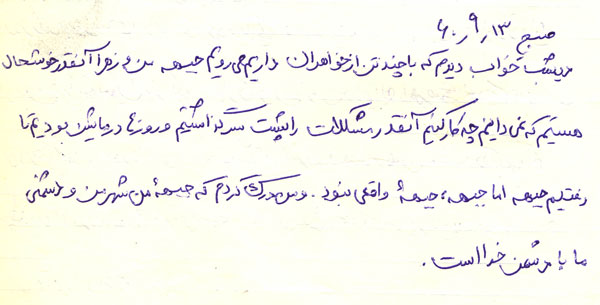 صبح ۶۰٫۹٫۱۳
دیشب خواب دیدم که با چند تن از خواهران داریم می رویم جبهه من و زهرا آنقدر خوشحال
هستیم که نمی دانیم چه کار کنیم آنقدر مشکلات را پشت سر گذاشتیم و روزها در بودیم تا
رفتیم جبهه اما جبهه، جبههٔ واقعی نبود. و من درک کردم که جبههٔ من شهر من و دشمنی
ما با دشمن خدا است.